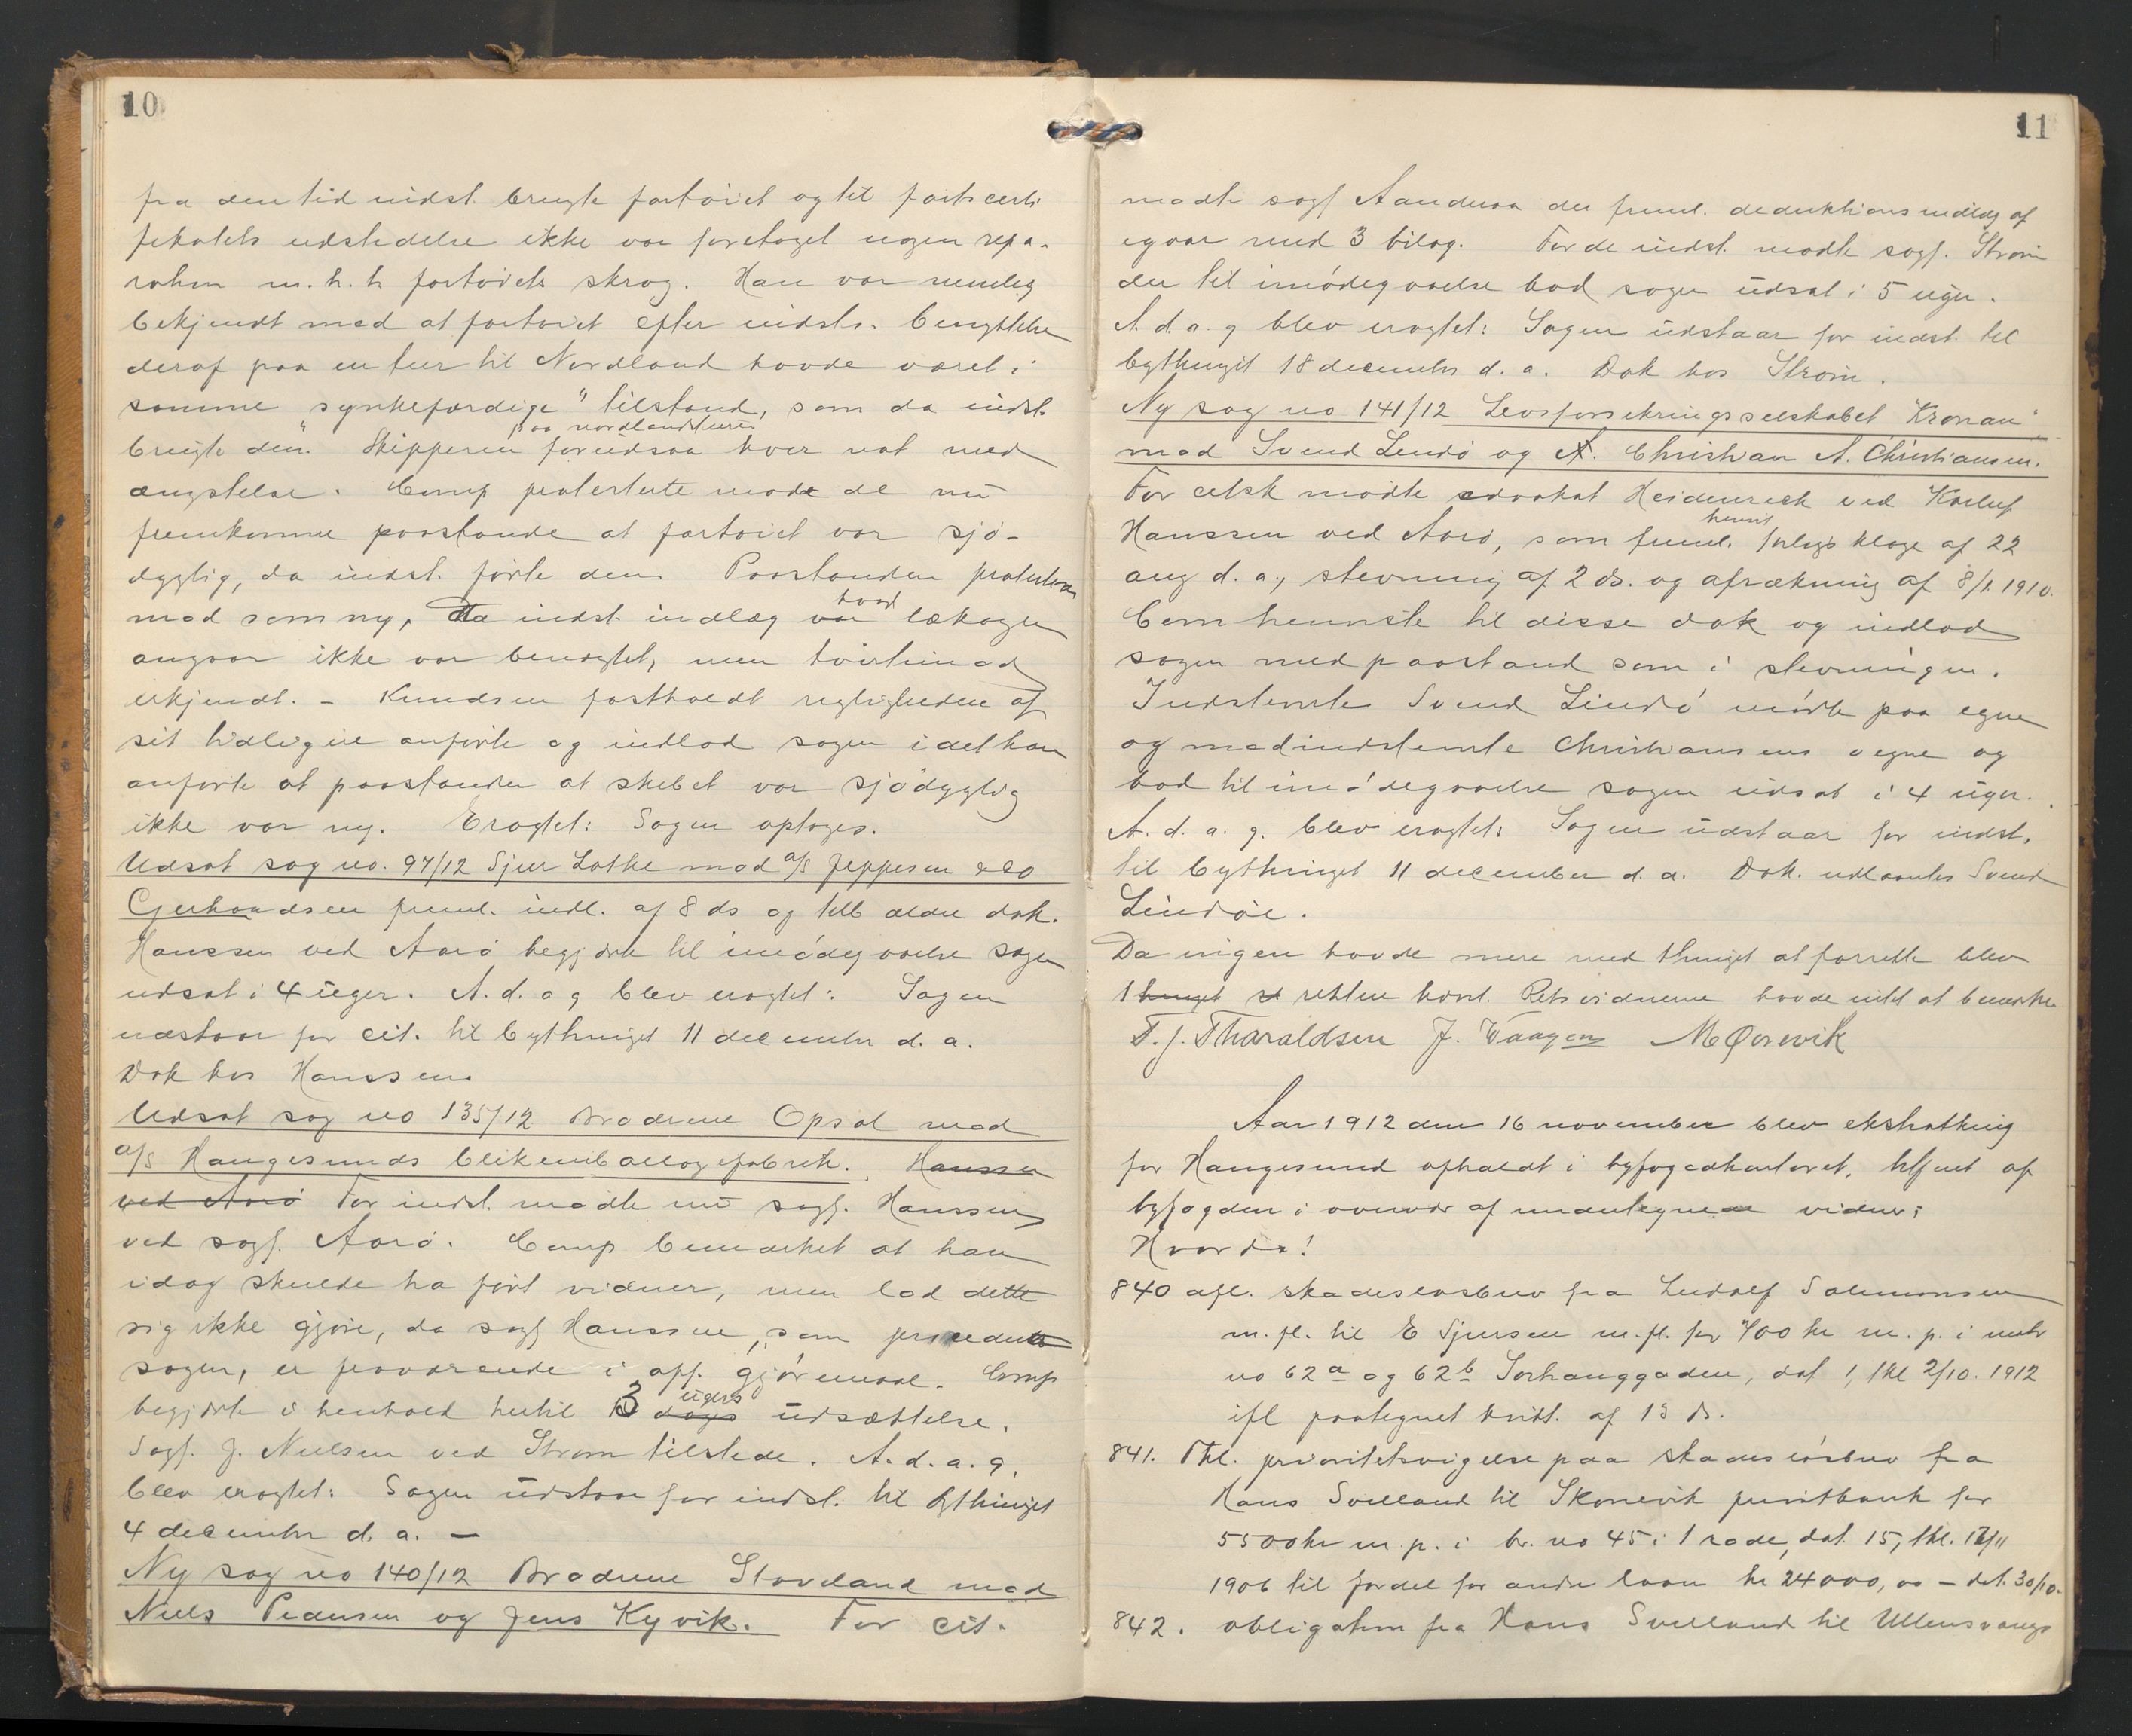 10
fra den tid indst. brugte fartöiet og til fartscerti
fikatets udstedelse ikke var foretaget nogen repa-
ration m. h. t fartöiets skrog. Han var nemlig
bekjendt med at fartöiet efter indsts. benyttelse
deraf paa en tur til Nordland havde været i
samme "synkefærdige" tilstand, som da indst.
brugte den.
paa nordlandsturen
Skipperen forudsaa hver nat med
ængstelse. Comp protesterte mod de nu
fremkomne paastande at fartöiet var sjö-
dygtig, da indst. förte den. Paastanden protesteres
mod som ny, da indst. indlæg hvad lækagen
angaar ikke var benægtet, men tvertimod
erkjendt. - Knudsen fastholdt rigtigheden af
sit tidligere anförte og indlod sagen idet han
anförte at paastanden at skibet var sjödygtig
ikke var ny. Eragtet: Sagen optages.
Udsat sag no. 97/12 Sjur Lothe mod a/s Jeppesen & Co
Gerhardsen freml. indl. af 8 ds og tilb ældre dok.
Hanssen ved Aarö begjærte til imödegaaelse sagen
udsat i 4 uger. A. d. a g blev eragtet: Sagen
udstaar for cit. til bythinget 11 december d. a.
Dok hos Hanssen.
Udsat sag no 135/12 Brødrene Opsal mod
a/s Haugesunds blikemballagefabrik. Hanssen
ved Aarö For indst. mødte nu sagf. Hanssen
ved sagf. Aarö. Comp bemærket at han
idag skulde ha fört vidner, men lod dette
sig ikke gjöre, da sagf Hanssen, som procederte
sagen, er fraværende i off. gjöremaal. Comp
begjærte i henhold hertil 3 dages
ugers
udsættelse.
Sagf. J. Nielsen ved Strøm tilstede. A. d. a. g.
blev eragtet: Sagen udstaar for indst. til bythinget
4 december d. a. -
Ny sag no 140/12 Brødrene Stoveland mod
Niels Pedersen og Jens Kyvik. For cit.
11
mødte sagf Aanderaa der freml. deduktionsindlæg af
igaar med 3 bilag. For de indst. mødte sagf. Strøm
der til imödegaaelse bad sagen udsat i 5 uger.
A. d. a. g blev eragtet: Sagen udstaar for indst. til
bythinget 18 december d. a. Dok hos Strøm.
Ny sag no 141/12 Livsforsikringsselskabet "Kronan"
mod Svend Lindö og A. Christian A. Christiansen.
For citsk mødte advokat Heidenreich ved
Hanssen ved Aarö, som freml. forligsklage af 22
aug d. a., stevning af 2 ds. og afrækning af 8/1. 1910.
Comp henviste til disse dok og indlod
sagen med paastand som i stevningen.
Indstevnte Svend Lindö mödte paa egne
og medindstevnte Christiansens vegne og
bad til imödegaaelse sagen udsat i 4 uger.
A. d. a. g. blev eragtet: Sagen udstaar for indst.
til bythinget 11 december d. a. Dok. udlaantes Svend
Lindöe.
Da ingen havde mere med thinget at forrette blev
thinget retten hævt. Retsvidnerne havde intet at bemærke
T. J. Tharaldsen J. Waagen M Qvrevik
Aar 1912 den 16 november blev ekstrathing
for Haugesund afholdt i byfogedkontoret, betjent af
byfogden i overvær af undertegnede vidner;
Hvorda!
840 afl. skadesløsbrev fra Ludolf Salemonsen
m. fl. til E Sjursen m. fl. for 400 kr m. p. i matr
no 62a og 62b Sørhauggaden, dat 1, thl 2/10. 1912
ifl paategnet kvitt. af 15 ds.
841. Thl. prioritetsvigelse paa skadeslösbrev fra
Hans Svelland til Skonevik privatbank for
5500 kr m. p. i br. no 45 i 1 rode, dat. 15, thl. 17/11
1906 til fordel for andre laan kr 24000,00 - dat. 30/10.
842. obligation fra Hans Svelland til Ullensvangs